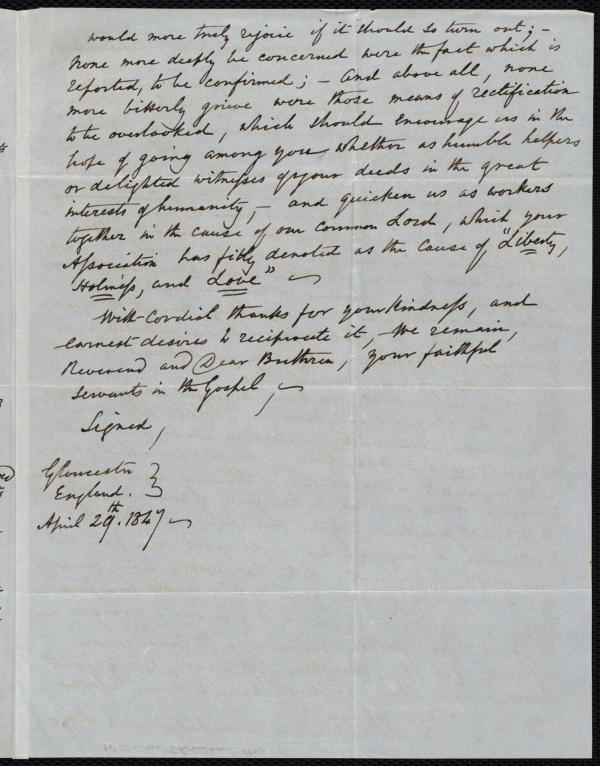 would more truly rejoice if it should so turn out; –
none more deeply be concerned were the fact which is
reported, to be confirmed; – And above all, none
more bitterly grieve were those means of rectification
to be overlooked, which should encourage us in the
hope of going among you whether as humble helpers
or delighted witnesses of your deeds in the great
interests of humanity, – and quicken us as workers
together in the cause of our common Lord, which your
Association has fitly denoted as the cause of "Liberty,
Holiness, and Love"
With cordial thanks for your kindness, and
earnest desires to reciprocate it, We remain,
Reverend and Dear Brethren, your faithful
servants in the Gospel,
Signed,
Gloucester
England.
April 29th. 1847